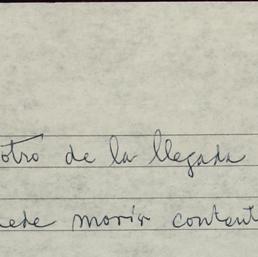 otro de la llegada
uede morir content